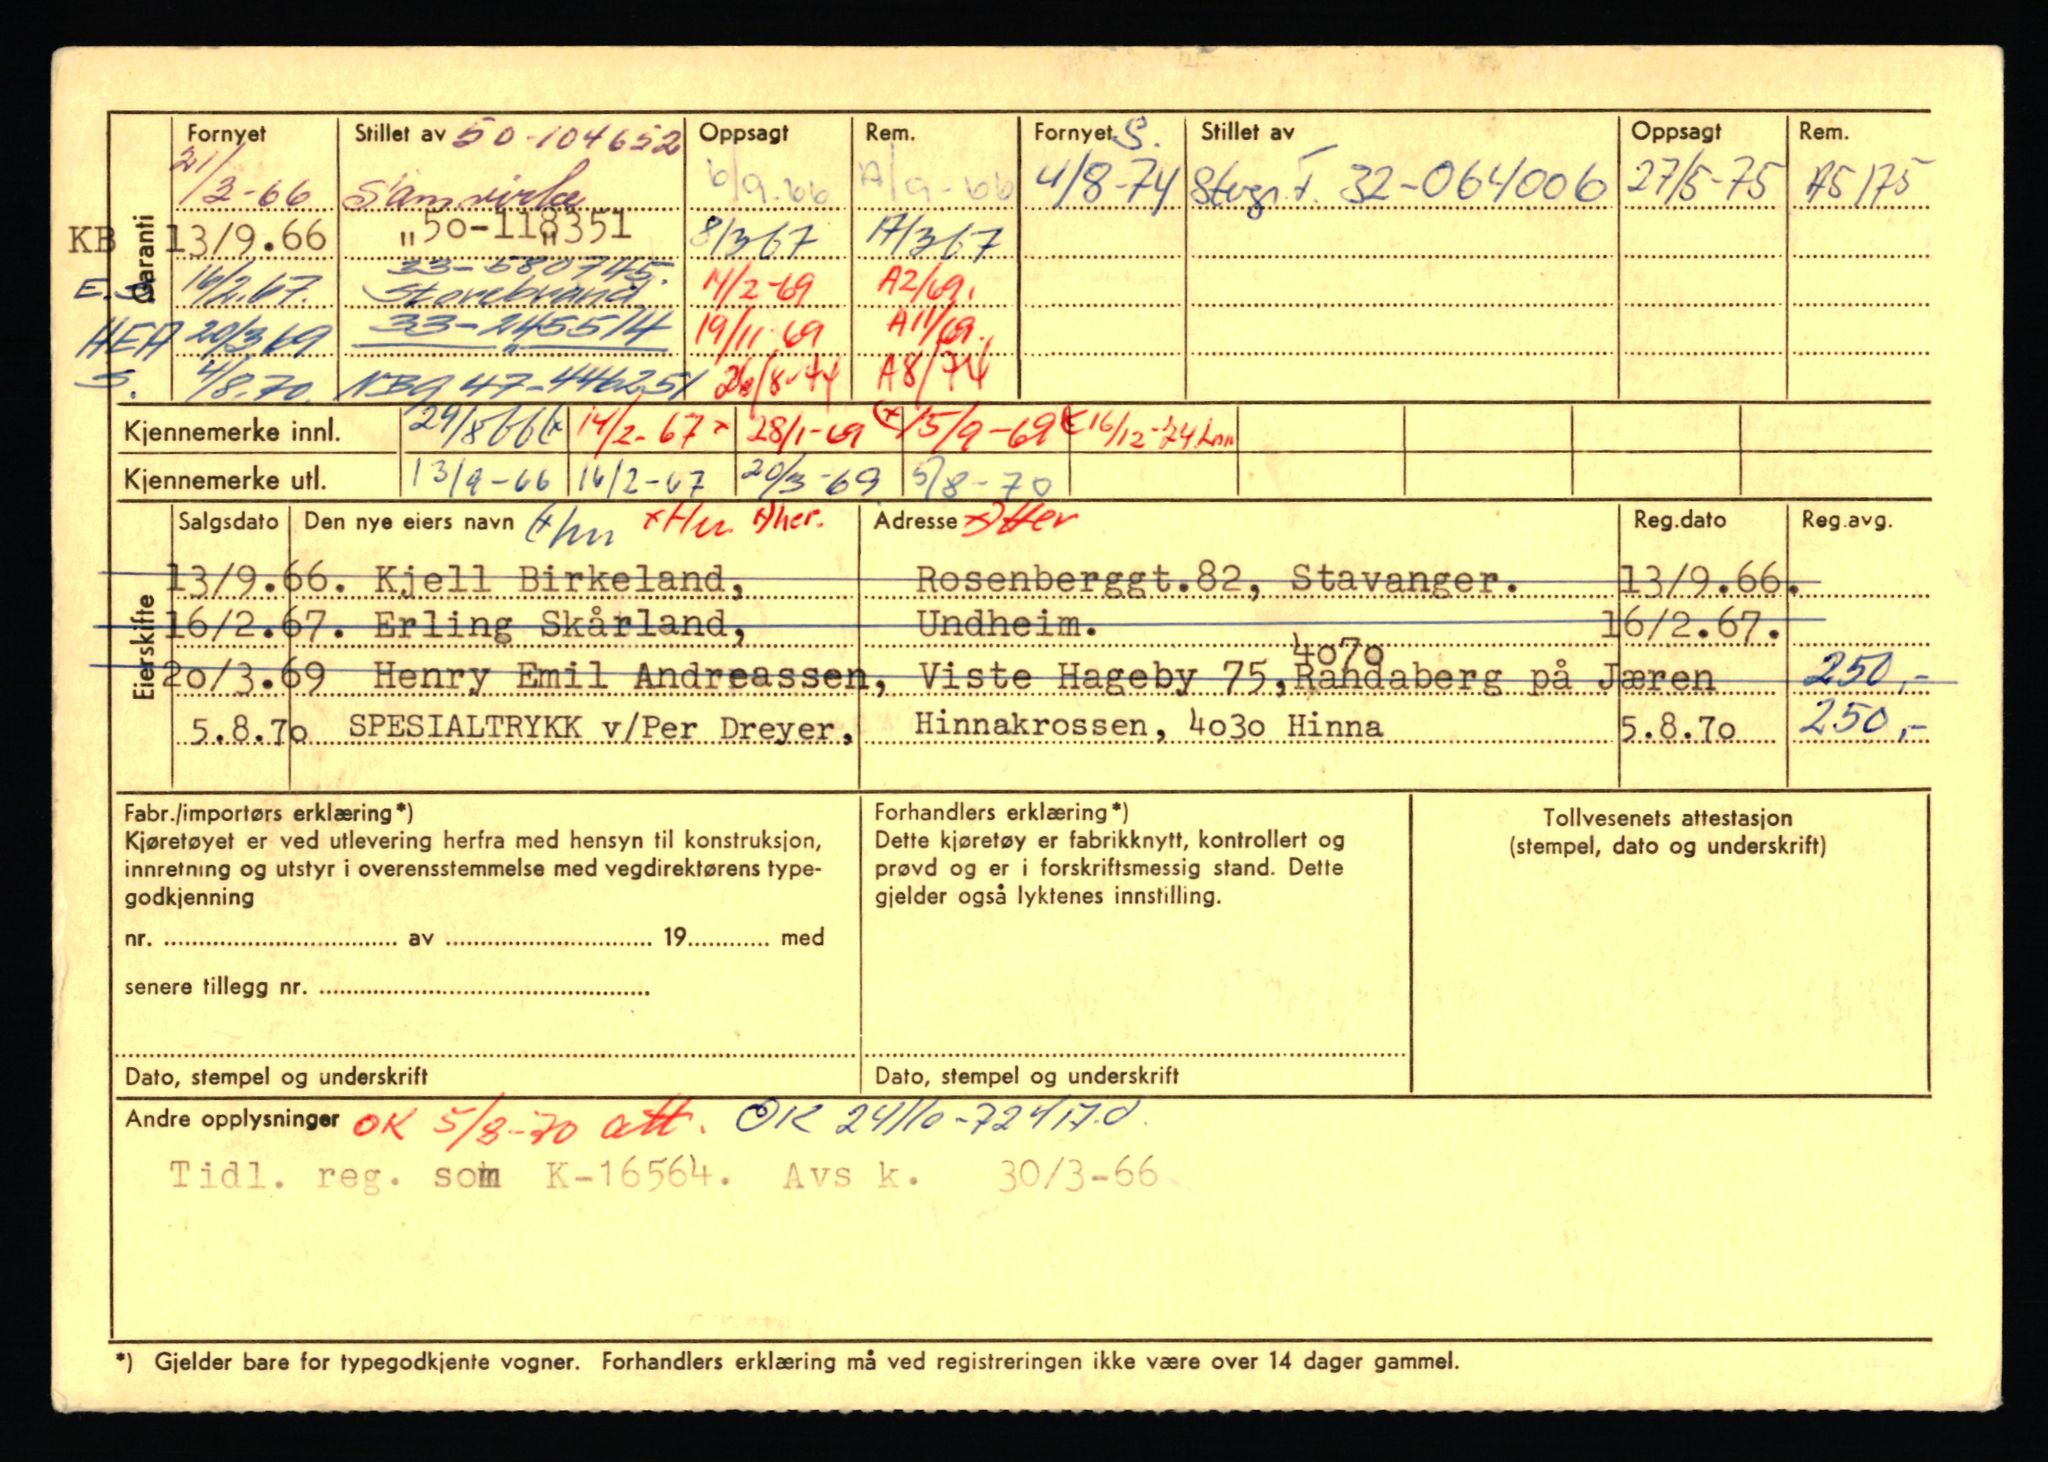 Garanti
Fornyet Stillet av 50-104652 Oppsagt Rem. Fornyet S. Stillet av Oppsagt Rem.
21/3-66 Samvirke 6/9.66 A/9-66 4/8-74 32-064006 27/5-75 A5/75
KB 13/9.66 „50-118351 8/3 67 A/3 67
33-580745.
E.S. 16/2.67. Storebrand 11/2-69 A2/69.
HEA 20/3 69 33-245514 19/11-69 A11/69.
S. 4/8.70. 47-446251 26/8-74 A8/74
Kjennemerke innl. 29/8 66 (x 14/2-67 x 28/1-69 (x 15/9-69 16/12-74
Kjennemerke utl. 13/9-66 16/2-67 20/3-69 5/8-70
Eierskifte
Salgsdato Den nye eiers navn Adresse Reg.dato Reg.avg.
13/9.66. Kjell Birkeland, Rosenberggt.82, Stavanger. 13/9.66.
16/2.67. Erling Skårland, Undheim. 16/2.67.
4o7o
2o/3.69 Henry Emil Andreassen, Viste Hageby 75, Randaberg på Jæren 250,-
5.8.7o SPESIALTRYKK v/Per Dreyer, Hinnakrossen, 4o3o Hinna 5.8.7o 250,-
Fabr./importørs erklæring*) Forhandlers erklæring*) Tollvesenets attestasjon
Kjøretøyet er ved utlevering herfra med hensyn til konstruksjon, Dette kjøretøy er fabrikknytt, kontrollert og (stempel, dato og underskrift)
innretning og utstyr i overensstemmelse med vegdirektørens type- prøvd og er i forskriftsmessig stand. Dette
godkjenning gjelder også lyktenes innstilling.
nr. .......... av .......... 19.......... med
senere tillegg nr. ..........
Dato, stempel og underskrift Dato, stempel og underskrift
Andre opplysninger OK 5/8-70 att. OK 24/10-72
Tidl. reg. som K-16564. Avs k. 30/3-66
*) Gjelder bare for typegodkjente vogner. Forhandlers erklæring må ved registreringen ikke være over 14 dager gammel.